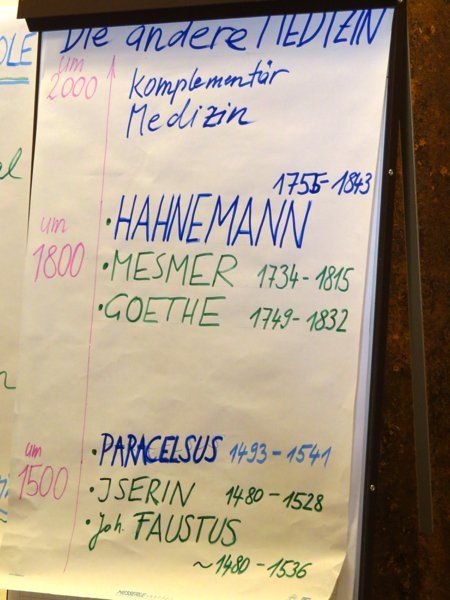 Die andere MEDIZIN
um
2000
Komplementär
Medizin
1755-1843
um
1800
• HAHNEMANN
• MESMER 1734-1815
• GOETHE 1749-1832
um
1500
• PARACELSUS 1493-1541
• JSERIN 1480-1528
• Joh. FAUSTUS
~1480-1536